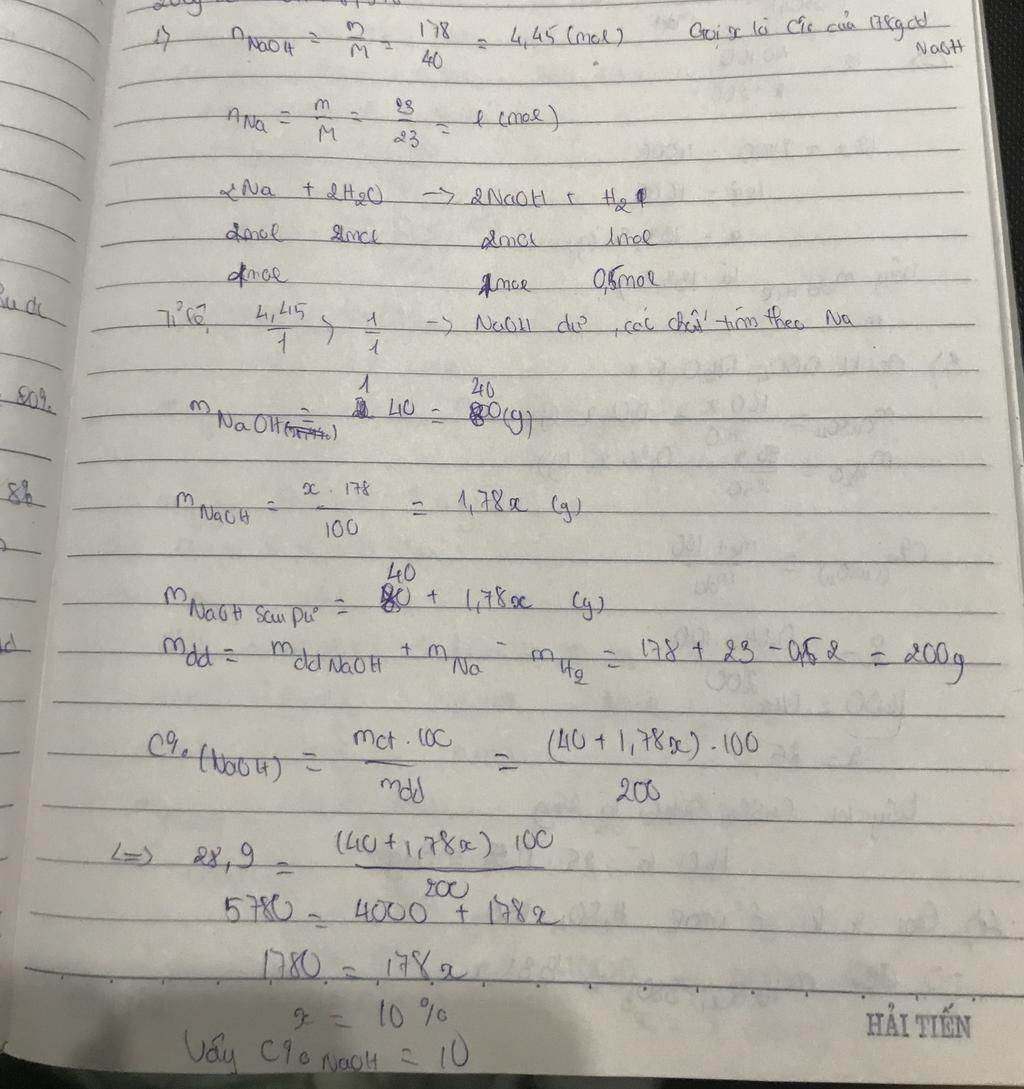 200g
1) nNaOH = m/M = 178/40 = 4,45 (mol) Gọi x là C% của 178g dd NaOH
nNa = m/M = 23/23 = 1 (mol)
2Na + 2H2O → 2NaOH + H2↑
2mol 2mol 2mol 1mol
1mol 1mol 0,5mol
Tỉ lệ 4,45/1 > 1/1 → NaOH dư, các chất tính theo Na
mNaOH = 1 40 = 40 (g)
mNaOH = x . 178/100 = 1,78x (g)
mNaOH sau pư = 40 + 1,78x (g)
mdd = mddNaOH + mNa - mH2 = 178 + 23 - 0,5 2 = 200g
C%(NaOH) = mct . 100/mdd = (40 + 1,78x) . 100/200
<=> 28,9 = (40 + 1,78x) 100/200
5780 = 4000 + 178x
1780 = 178x
x = 10 %
Vậy C% NaOH = 10
80%
8%
dd
HẢI TIẾN